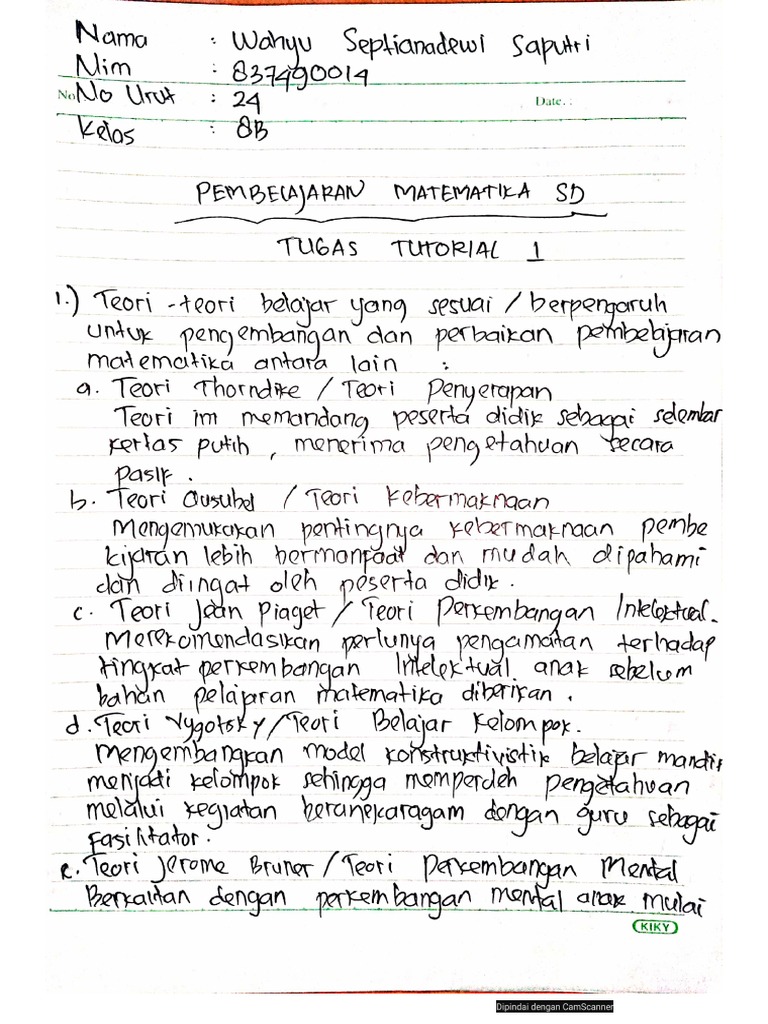 Nama : Wahyu Septianadewi Saputri
Nim : 837490014
No No Urut : 24 Date. :
Kelas : 8B
PEMBELAJARAN MATEMATIKA SD
TUGAS TUTORIAL 1
1.) Teori-teori belajar yang sesuai / berpengaruh
untuk pengembangan dan perbaikan pembelajaran
matematika antara lain :
a. Teori Thorndike / Teori Penyerapan
Teori ini memandang peserta didik sebagai selembar
kertas putih, menerima pengetahuan secara
pasif.
b. Teori Ausubel / Teori Kebermaknaan
Mengemukakan pentingnya kebermaknaan pembe
lajaran lebih bermanfaat dan mudah dipahami
dan diingat oleh peserta didik.
c. Teori Jean Piaget / Teori Perkembangan Intelektual.
Merekomendasikan perlunya pengamatan terhadap
tingkat perkembangan Intelektual anak sebelum
bahan pelajaran matematika diberikan.
d. Teori Vygotsky / Teori Belajar Kelompok.
Mengembangkan model konstruktivistik belajar mandiri
menjadi kelompok sehingga memperoleh pengetahuan
melalui kegiatan beranekaragam dengan guru sebagai
fasilitator.
e. Teori Jerome Bruner / Teori Perkembangan Mental
Berkaitan dengan perkembangan mental anak mulai
KIKY
Dipindai dengan CamScanner